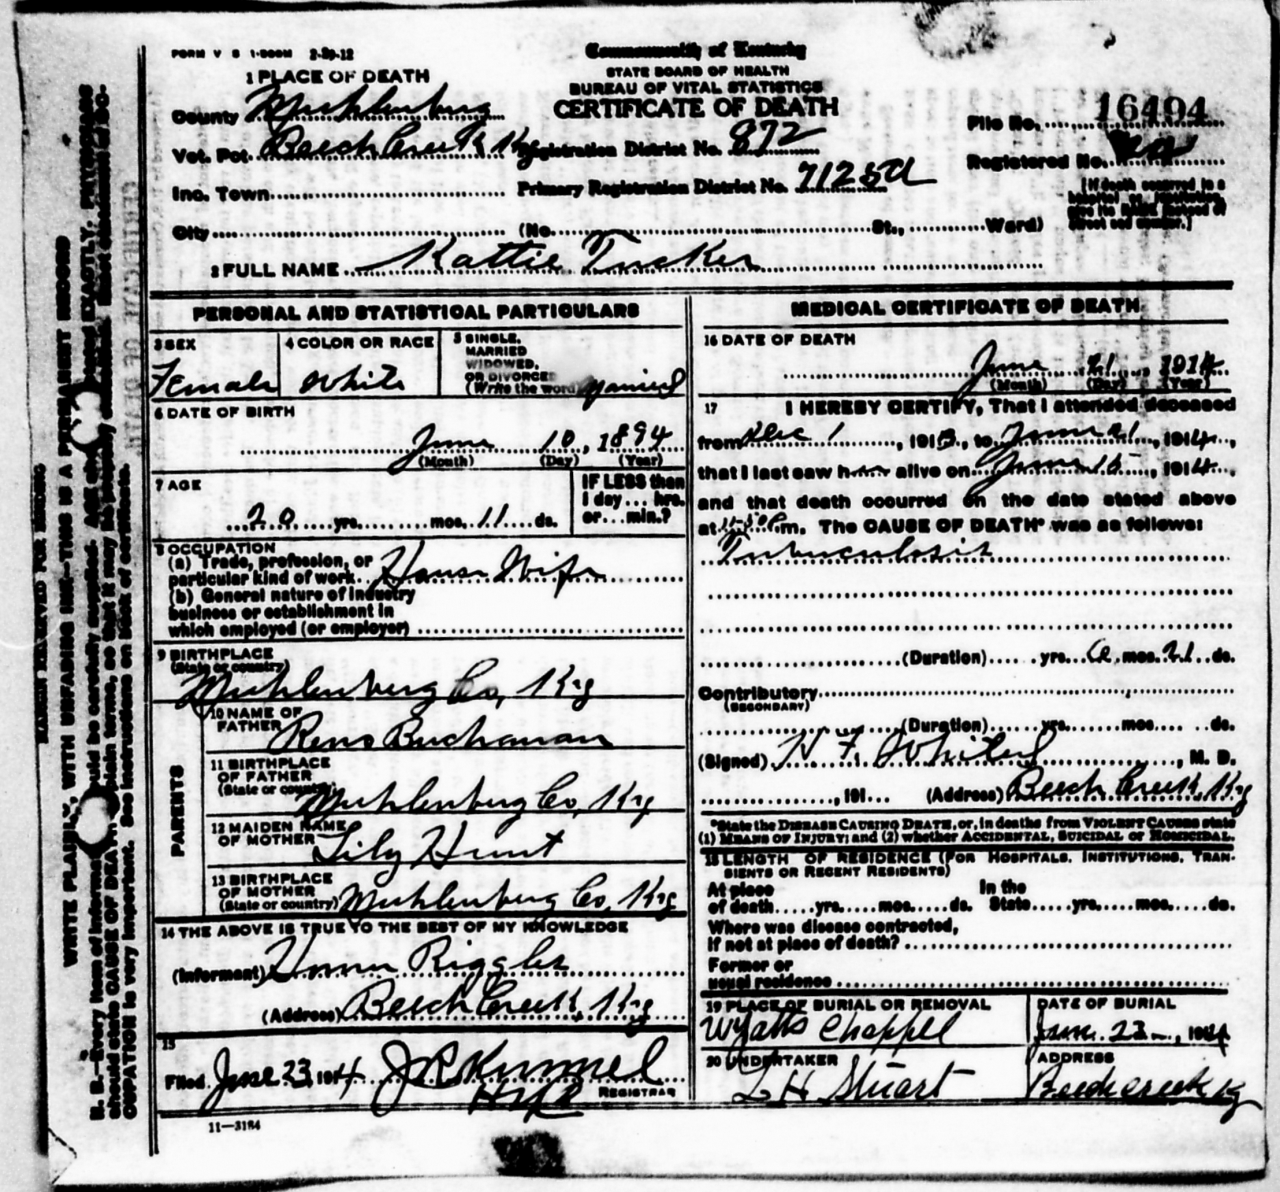 FORM V S 1-500M 2-29-12
Commonwealth of Kentucky
STATE BOARD OF HEALTH
BUREAU OF VITAL STATISTICS
CERTIFICATE OF DEATH
1 PLACE OF DEATH
County Muhlenburg
Vot. Pct. Beech Creek Ky
Inc. Town
City
Registration District No. 872
Primary Registration District No. 7125a
(No. St., Ward)
File No. 16494
Registered No.
[If death occurred in a hospital or institution, give its NAME instead of street and number.]
2 FULL NAME Kattie Tucker
PERSONAL AND STATISTICAL PARTICULARS
3 SEX
Female
4 COLOR OR RACE
White
5 SINGLE,
MARRIED
WIDOWED,
OR DIVORCED
(Write the word) Married
6 DATE OF BIRTH
June 10, 1894
(Month) (Day) (Year)
7 AGE
20 yrs. mos. 11 ds.
IF LESS than
1 day... hrs.
or... min.?
8 OCCUPATION
(a) Trade, profession, or
particular kind of work House Wife
(b) General nature of industry
business or establishment in
which employed (or employer)
9 BIRTHPLACE
(State or country)
Muhlenburg Co, Ky
PARENTS
10 NAME OF
FATHER Reno Buchanan
11 BIRTHPLACE
OF FATHER
(State or country) Muhlenburg Co, Ky
12 MAIDEN NAME
OF MOTHER Lily Hunt
13 BIRTHPLACE
OF MOTHER
(State or country) Muhlenburg Co, Ky
14 THE ABOVE IS TRUE TO THE BEST OF MY KNOWLEDGE
(Informant) Homer Riggles
(Address) Beech Creek, Ky
15
Filed June 23 1914 J R Kimmel
REGISTRAR
11-3184
MEDICAL CERTIFICATE OF DEATH
16 DATE OF DEATH
June 21, 1914
(Month) (Day) (Year)
17 I HEREBY CERTIFY, That I attended deceased
from Dec 1, 1913, to June 21, 1914,
that I last saw her alive on June 15, 1914,
and that death occurred on the date stated above
at m. The CAUSE OF DEATH* was as follows:
Tuberculosis
(Duration) yrs. 6 mos. 21 ds.
Contributory
(SECONDARY)
(Duration) yrs. mos. ds.
(Signed) , M. D.
, 191... (Address) Beech Creek, Ky
*State the DISEASE CAUSING DEATH, or, in deaths from VIOLENT CAUSES state
(1) MEANS OF INJURY; and (2) whether ACCIDENTAL, SUICIDAL or HOMICIDAL.
18 LENGTH OF RESIDENCE (FOR HOSPITALS, INSTITUTIONS, TRAN-
SIENTS OR RECENT RESIDENTS)
At place of death yrs. mos. ds.
In the State yrs. mos. ds.
Where was disease contracted,
if not at place of death?
Former or
usual residence
19 PLACE OF BURIAL OR REMOVAL
Wyatts Chappel
DATE OF BURIAL
June 23, 1914
20 UNDERTAKER
L H Stuart
ADDRESS
Beechcreek Ky
MARGIN RESERVED FOR BINDING
WRITE PLAINLY, WITH UNFADING INK—THIS IS A PERMANENT RECORD